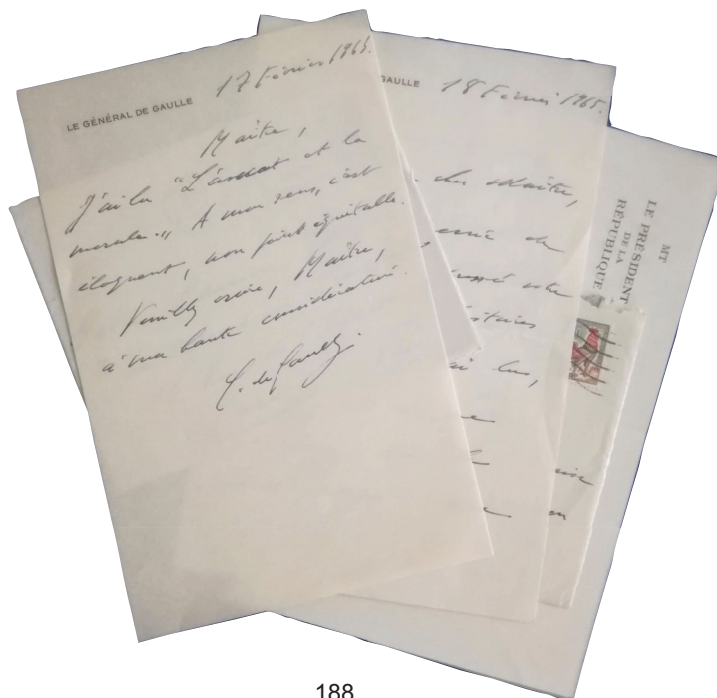 LE GÉNÉRAL DE GAULLE
17 Février 1965.
Maître,
J'ai lu "L'avocat et la
morale„. A mon sens, c'est
éloquent, non point équitable.
Veuillez croire, Maître,
à ma haute considération.
C. de Gaulle.
GAULLE
18 Février 1965.
cher Maître,
de
votre
ai lus,
MT
LE PRÉSIDENT
DE LA
RÉPUBLIQUE
188